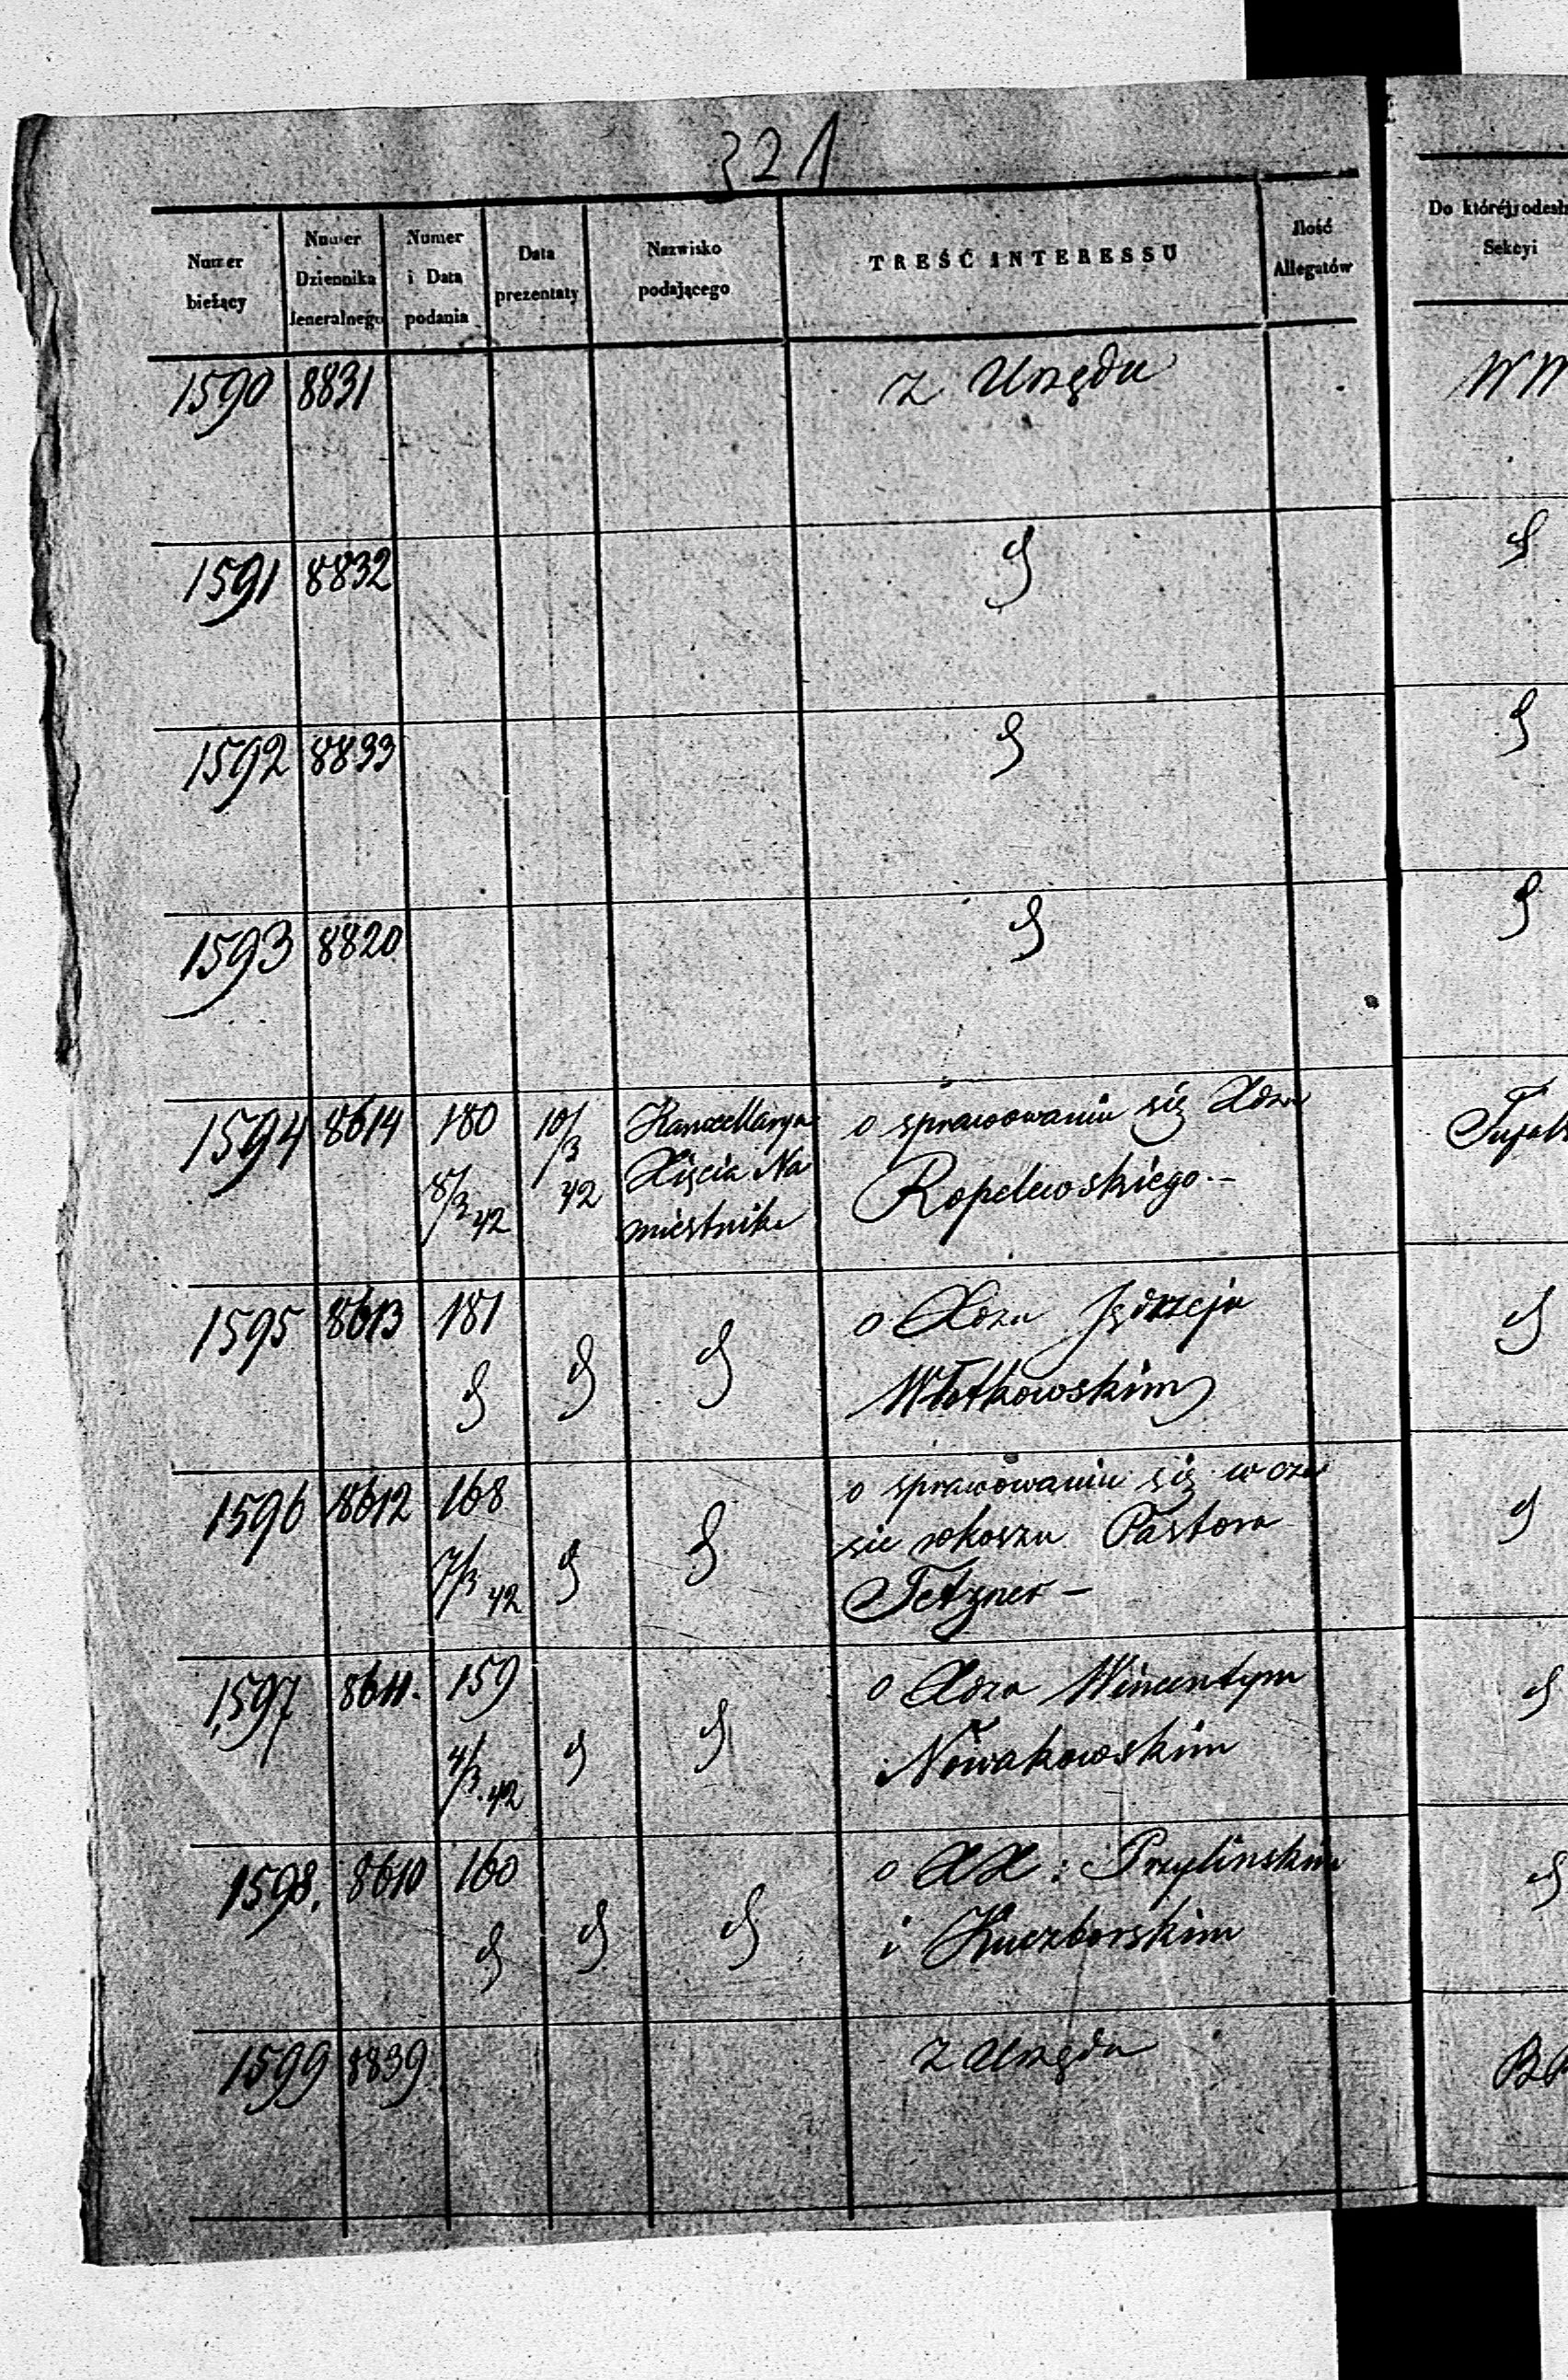 321
Numer bieżący
Numer Dziennika Jeneralnego
Numer i Data podania
Data prezentaty
Nazwisko podającego
TREŚĆ INTERESSU
Ilość Allegatów
Do któréj odesł
Sekcyi
1590 8831 z Urzędu WW
1591 8832 d d
1592 8833 d d
1593 8820 d d
1594 8614 180 10/3 Kancellarya o sprawowaniu się Xdza
8/3 42 42 Xięcia Na
miestnika Ropelewskiego.-
1595 8613 181 o Xdzu Jędrzeju
d d d Włotkowskim d
1596 8612 168 o sprawowaniu się w cza
7/3 42 d d sie rokoszu Pastora d
Tetzner -
1597 8611. 159 o Xdzu Wincentym
4/3 42 d d Nowakowskim d
1598. 8610 160 o XX: Przylinskim
d d d i Kuczborskim d
1599 8839 z Urzędu